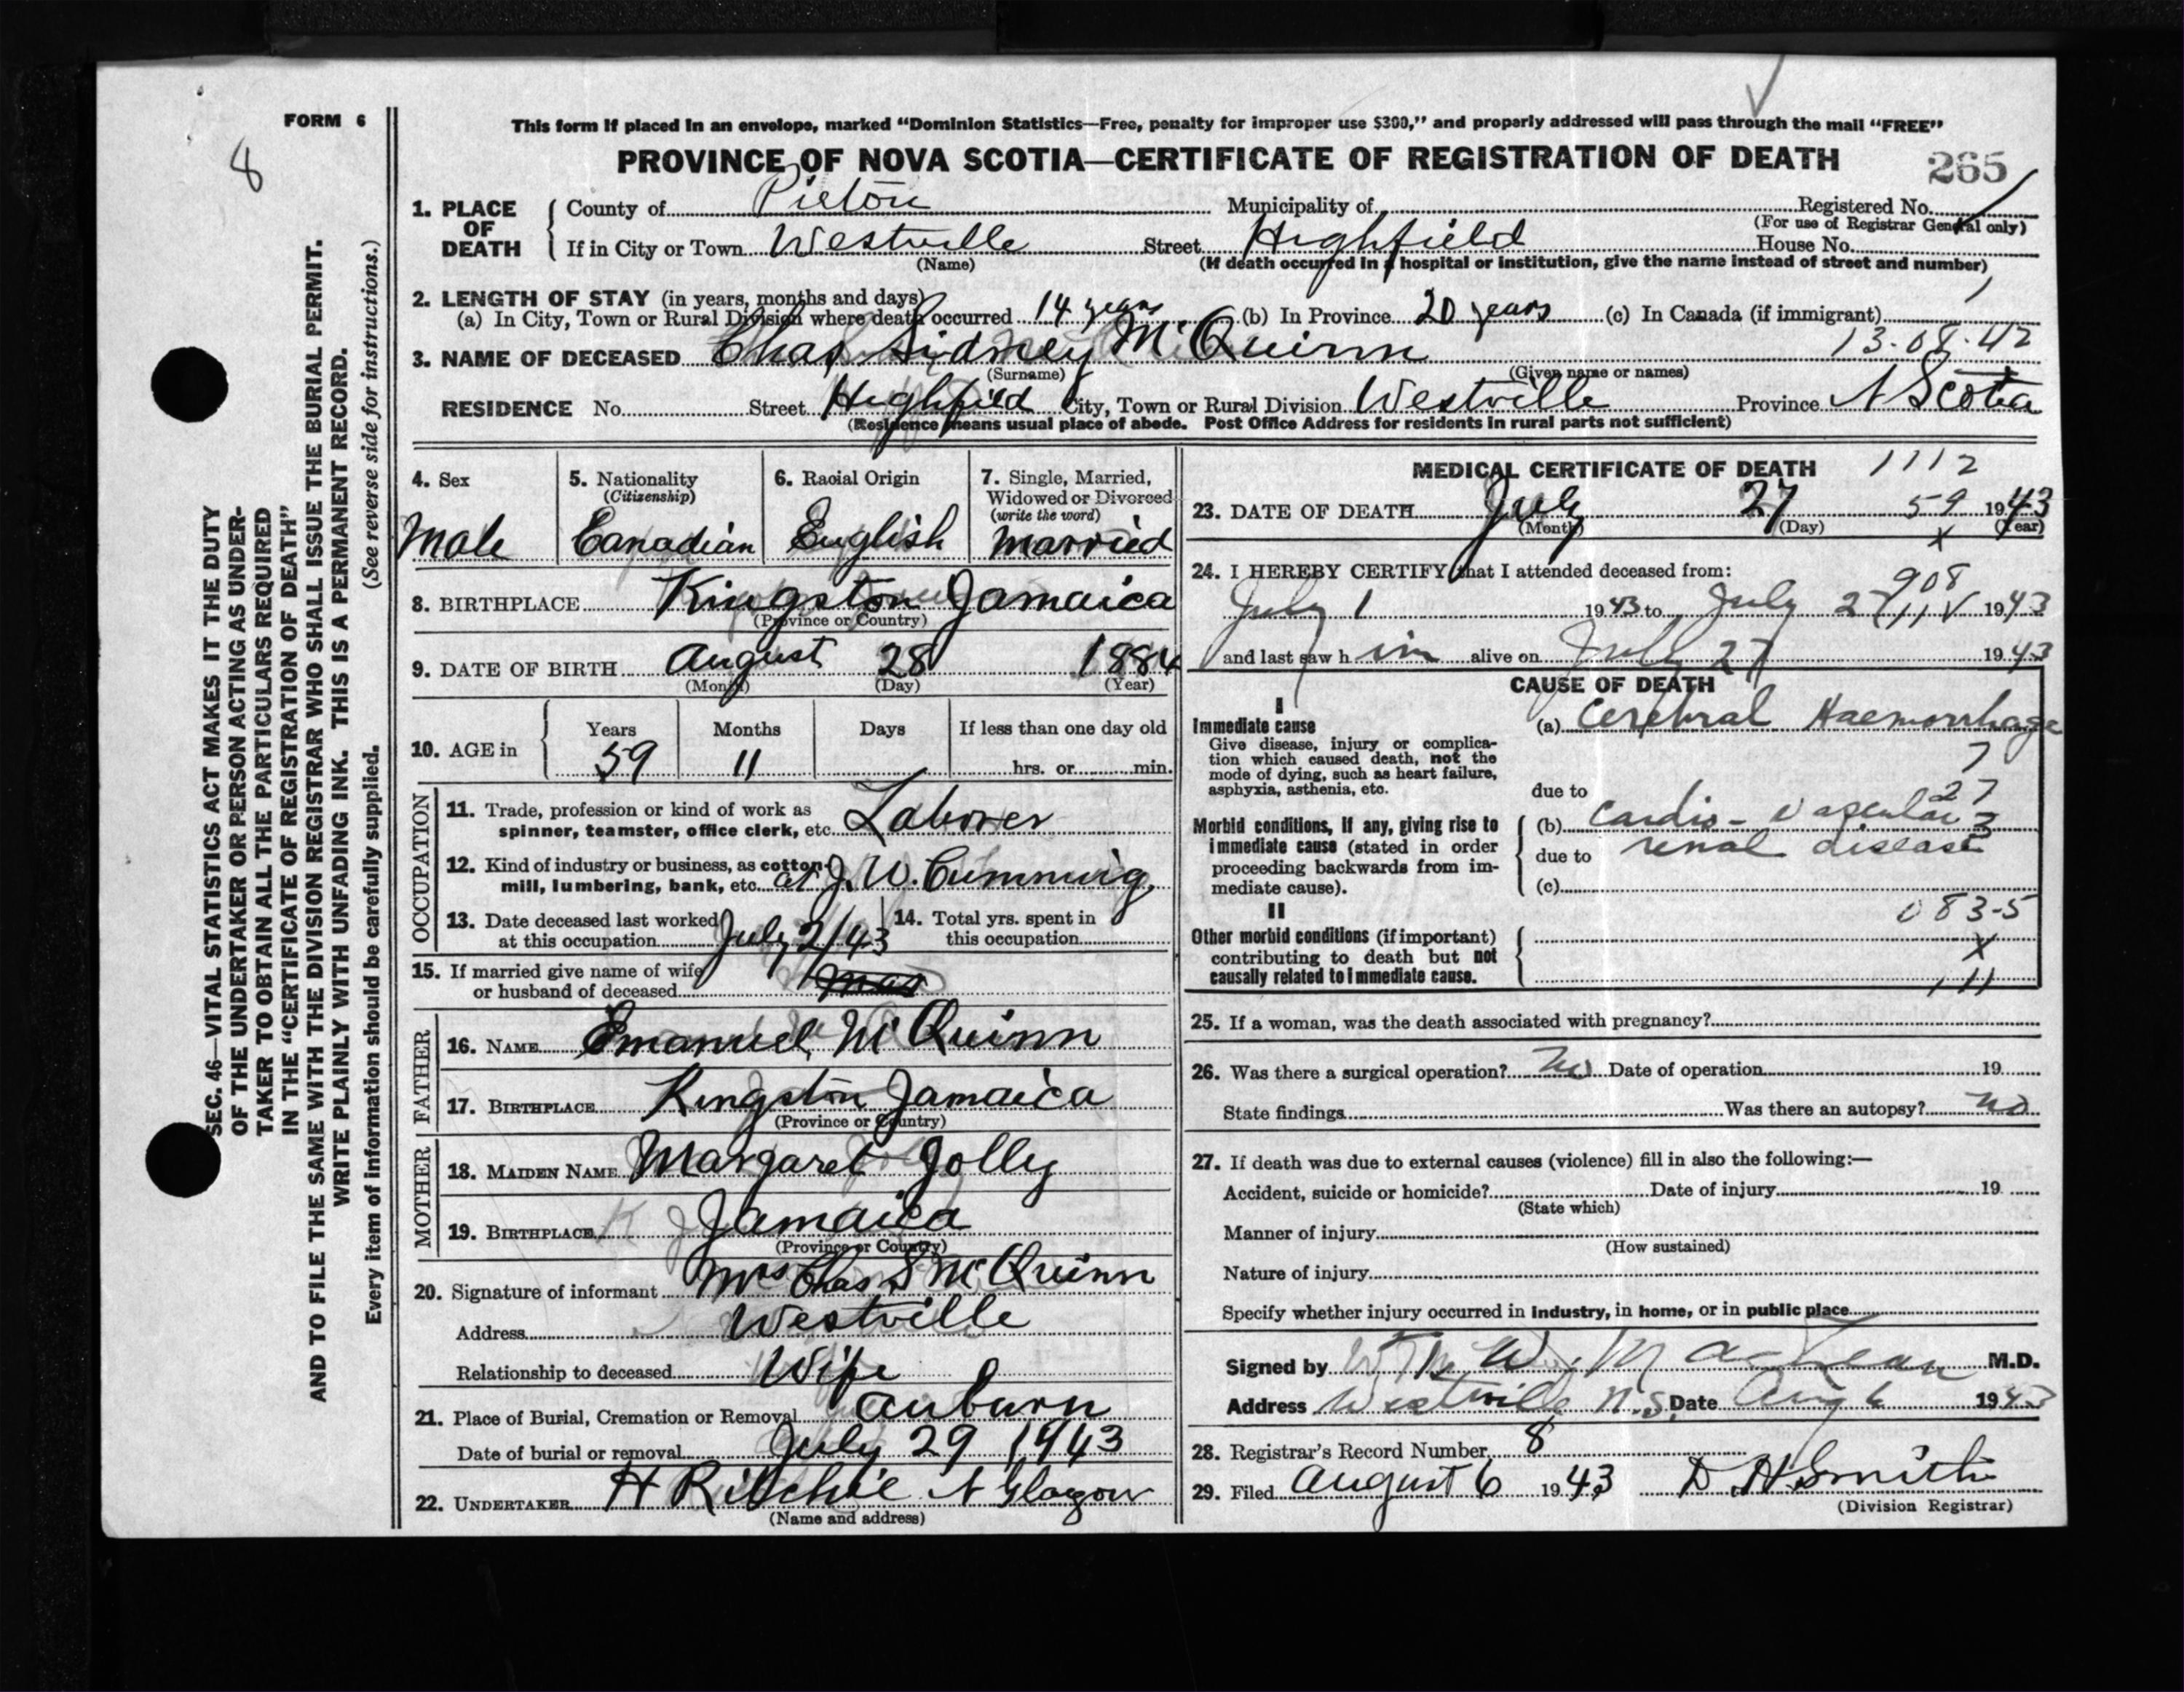 FORM 6
8
SEC. 46—VITAL STATISTICS ACT MAKES IT THE DUTY
OF THE UNDERTAKER OR PERSON ACTING AS UNDER-
TAKER TO OBTAIN ALL THE PARTICULARS REQUIRED
IN THE "CERTIFICATE OF REGISTRATION OF DEATH"
AND TO FILE THE SAME WITH THE DIVISION REGISTRAR WHO SHALL ISSUE THE BURIAL PERMIT.
WRITE PLAINLY WITH UNFADING INK. THIS IS A PERMANENT RECORD.
Every item of information should be carefully supplied. (See reverse side for instructions.)
This form if placed in an envelope, marked "Dominion Statistics—Free, penalty for improper use $300," and properly addressed will pass through the mail "FREE"
PROVINCE OF NOVA SCOTIA—CERTIFICATE OF REGISTRATION OF DEATH 265
1. PLACE OF DEATH County of Pictou Municipality of Registered No.
(For use of Registrar General only)
If in City or Town Westville Street Highfield House No.
(Name) (If death occurred in a hospital or institution, give the name instead of street and number)
2. LENGTH OF STAY (in years, months and days)
(a) In City, Town or Rural Division where death occurred 14 years (b) In Province 20 years (c) In Canada (if immigrant)
3. NAME OF DECEASED Chas Sidney McQuinn 13-08-42
(Surname) (Given name or names)
RESIDENCE No. Street Highfield City, Town or Rural Division Westville Province N Scotia
(Residence means usual place of abode. Post Office Address for residents in rural parts not sufficient)
4. Sex
Male
5. Nationality
(Citizenship)
Canadian
6. Racial Origin
English
7. Single, Married,
Widowed or Divorced
(write the word)
Married
8. BIRTHPLACE Kingston Jamaica
(Province or Country)
9. DATE OF BIRTH August 28 1884
(Month) (Day) (Year)
10. AGE in Years Months Days If less than one day old
59 11 hrs. or min.
OCCUPATION
11. Trade, profession or kind of work as
spinner, teamster, office clerk, etc. Laborer
12. Kind of industry or business, as cotton
mill, lumbering, bank, etc. at J. W. Cumming
13. Date deceased last worked
at this occupation July 2/43
14. Total yrs. spent in
this occupation
15. If married give name of wife
or husband of deceased
FATHER
16. NAME Emanuel McQuinn
17. BIRTHPLACE Kingston Jamaica
(Province or Country)
MOTHER
18. MAIDEN NAME Margaret Jolly
19. BIRTHPLACE Jamaica
(Province or Country)
20. Signature of informant Mrs Chas S McQuinn
Address Westville
Relationship to deceased Wife
21. Place of Burial, Cremation or Removal Auburn
Date of burial or removal July 29 1943
22. UNDERTAKER H Ritchie N Glasgow
(Name and address)
MEDICAL CERTIFICATE OF DEATH 1112
23. DATE OF DEATH July 27 59 1943
(Month) (Day) (Year)
x
24. I HEREBY CERTIFY that I attended deceased from:
908
July 1 1943 to July 27 1943
and last saw h im alive on July 27 1943
CAUSE OF DEATH
I
Immediate cause (a) Cerebral Haemorrhage
Give disease, injury or complica-
tion which caused death, not the
mode of dying, such as heart failure,
asphyxia, asthenia, etc.
7
due to
27
Morbid conditions, if any, giving rise to
immediate cause (stated in order
proceeding backwards from im-
mediate cause).
(b) Cardio-vascular 3
due to renal disease
(c)
II
083-5
Other morbid conditions (if important)
contributing to death but not
causally related to immediate cause.
X
111
25. If a woman, was the death associated with pregnancy?
26. Was there a surgical operation? No Date of operation 19
State findings Was there an autopsy? no
27. If death was due to external causes (violence) fill in also the following:—
Accident, suicide or homicide? Date of injury 19
(State which)
Manner of injury
(How sustained)
Nature of injury
Specify whether injury occurred in industry, in home, or in public place
Signed by M.D.
Address Westville N.S. Date Aug 6 1943
28. Registrar's Record Number 8
29. Filed August 6 1943 D. H. Smith
(Division Registrar)